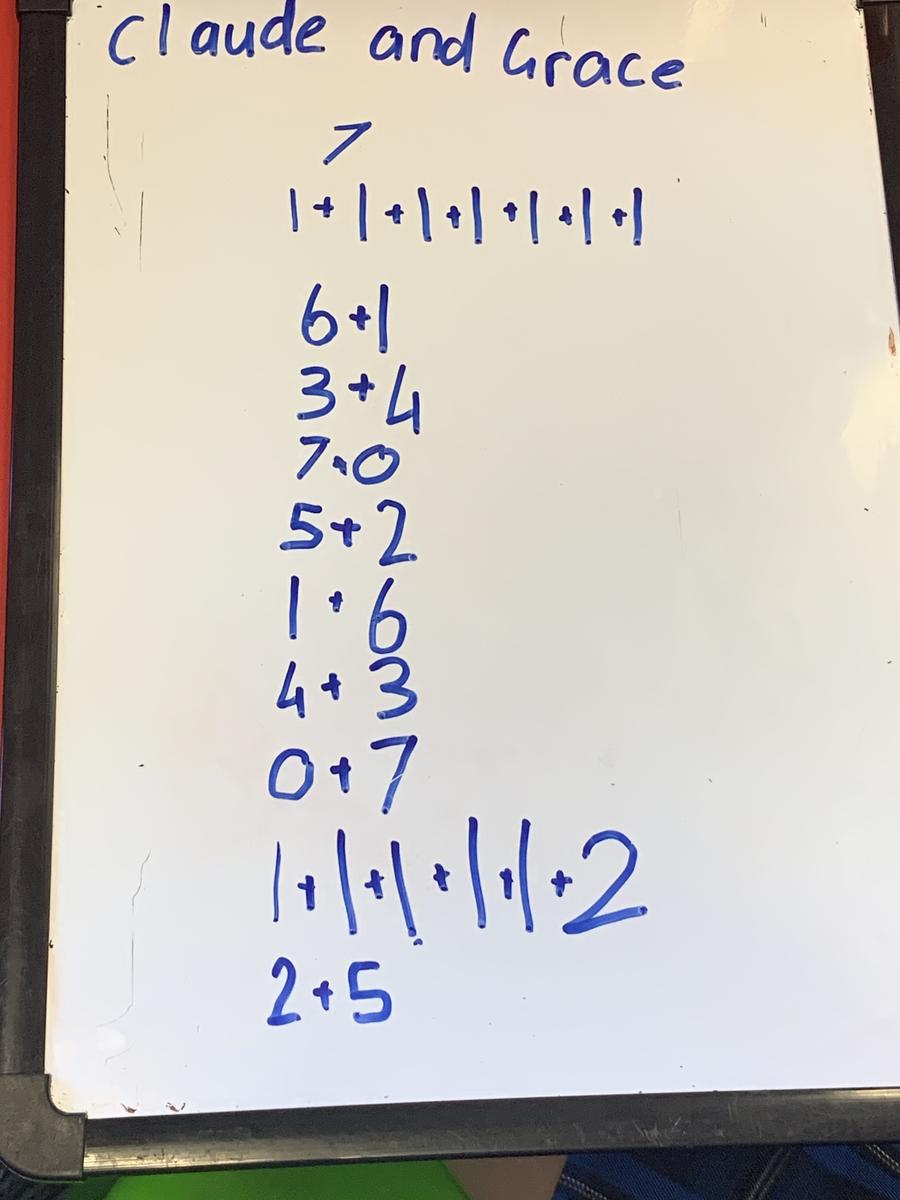 Claude and Grace
7
1+1+1+1+1+1+1
6+1
3+4
7+0
5+2
1+6
4+3
0+7
1+1+1+1+1+2
2+5